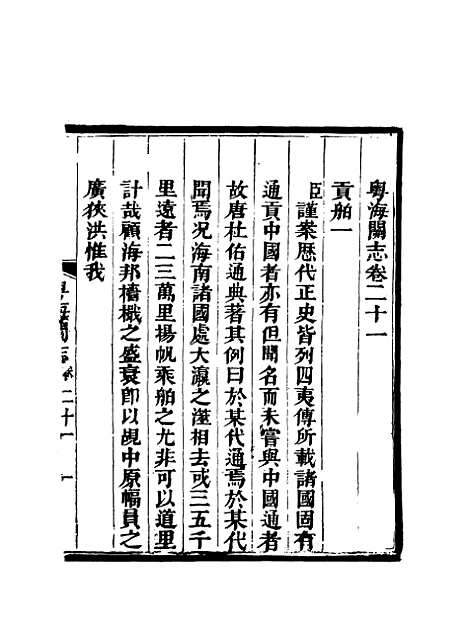 粵海關志卷二十一
貢舶一
臣謹案歷代正史皆列四夷傳所載諸國固有
通貢中國者亦有但聞名而未嘗與中國通者
故唐杜佑通典著其例曰於某代通焉於某代
聞焉況海南諸國處大瀛之溼相去或三五千
里遠者二三萬里揚帆乘舶之尢非可以道里
計哉顧海邦檣檝之盛衰卽以覘中原幅員之
廣狹洪惟我
粵海關志 卷二十一 一